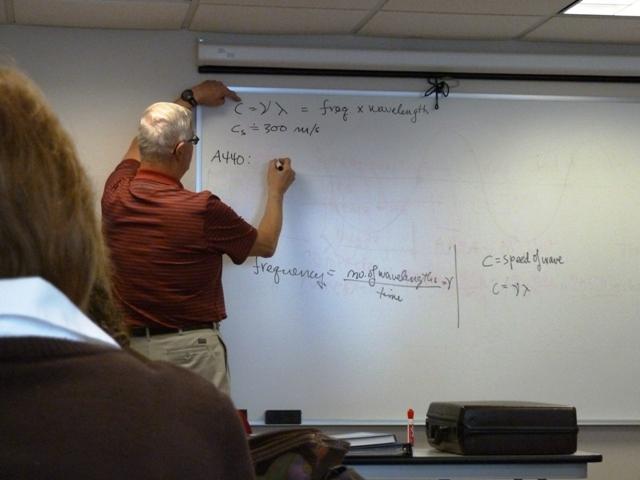 C = γ λ = freq x wavelength
Cs ≐ 300 m/s
A440:
frequency = no. of wavelengths / time = γ
C = speed of wave
C = γ λ